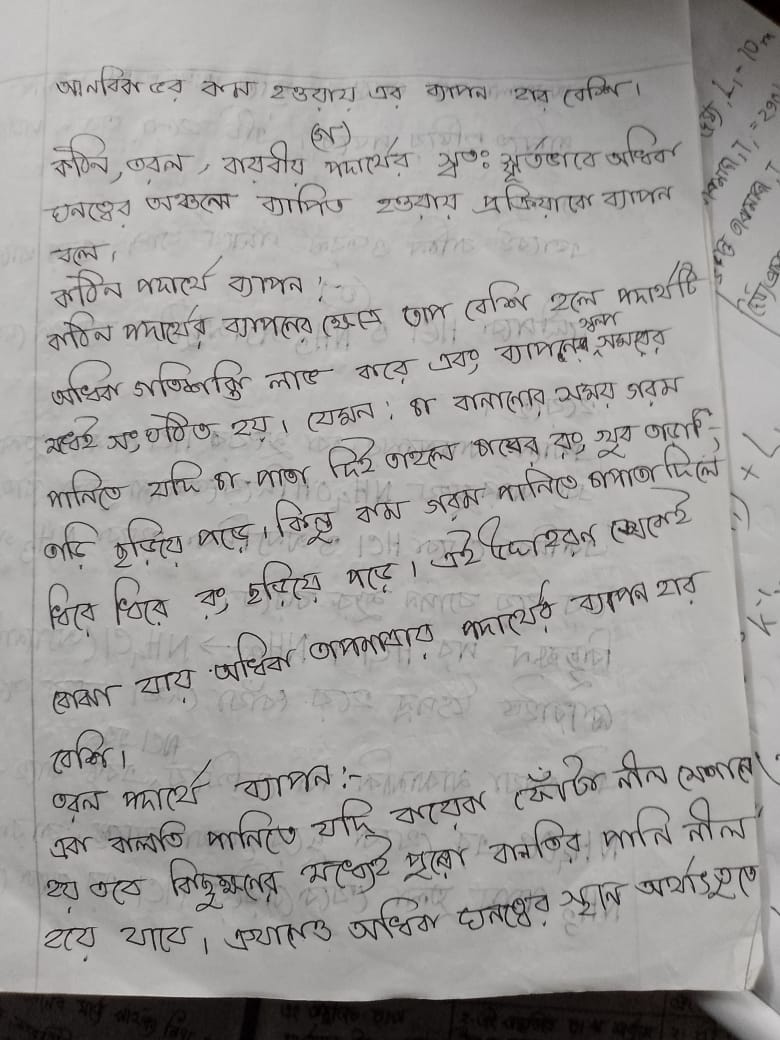 আনবিক ভর কম হওয়ায় এর ব্যাপন হার বেশি।
(গ)
কঠিন, তরল, বায়বীয় পদার্থের স্বতঃ স্ফূর্তভাবে অধিক
ঘনত্বের অঞ্চলে ব্যাপিত হওয়ায় প্রক্রিয়াকে ব্যাপন
বলে।
কঠিন পদার্থে ব্যাপন :-
কঠিন পদার্থের ব্যাপনের ক্ষেত্রে তাপ বেশি হলে পদার্থটি
অধিক গতিশক্তি লাভ করে এবং ব্যাপনের স্বল্প সময়ের
মধ্যেই সংঘঠিত হয়। যেমন: চা বানানোর সময় গরম
পানিতে যদি চা-পাতা দিই তাহলে চায়ের রং খুব তাড়া-
তাড়ি ছড়িয়ে পড়ে। কিন্তু কম গরম পানিতে চাপাতা দিলে
ধিরে ধিরে রং ছরিয়ে পড়ে। এই উদাহরন থেকেই
বোঝা যায় অধিক তাপমাত্রায় পদার্থের ব্যাপন হার
বেশি।
তরল পদার্থে ব্যাপন:-
এক বালতি পানিতে যদি কয়েক ফোঁটা নীল মেশানো
হয় তবে কিছুক্ষনের মধ্যেই পুরো বালতির পানি নীল
হয়ে যাবে। এখানেও অধিক ঘনত্বের স্থান অর্থাৎ হতে
L₁ = 10m